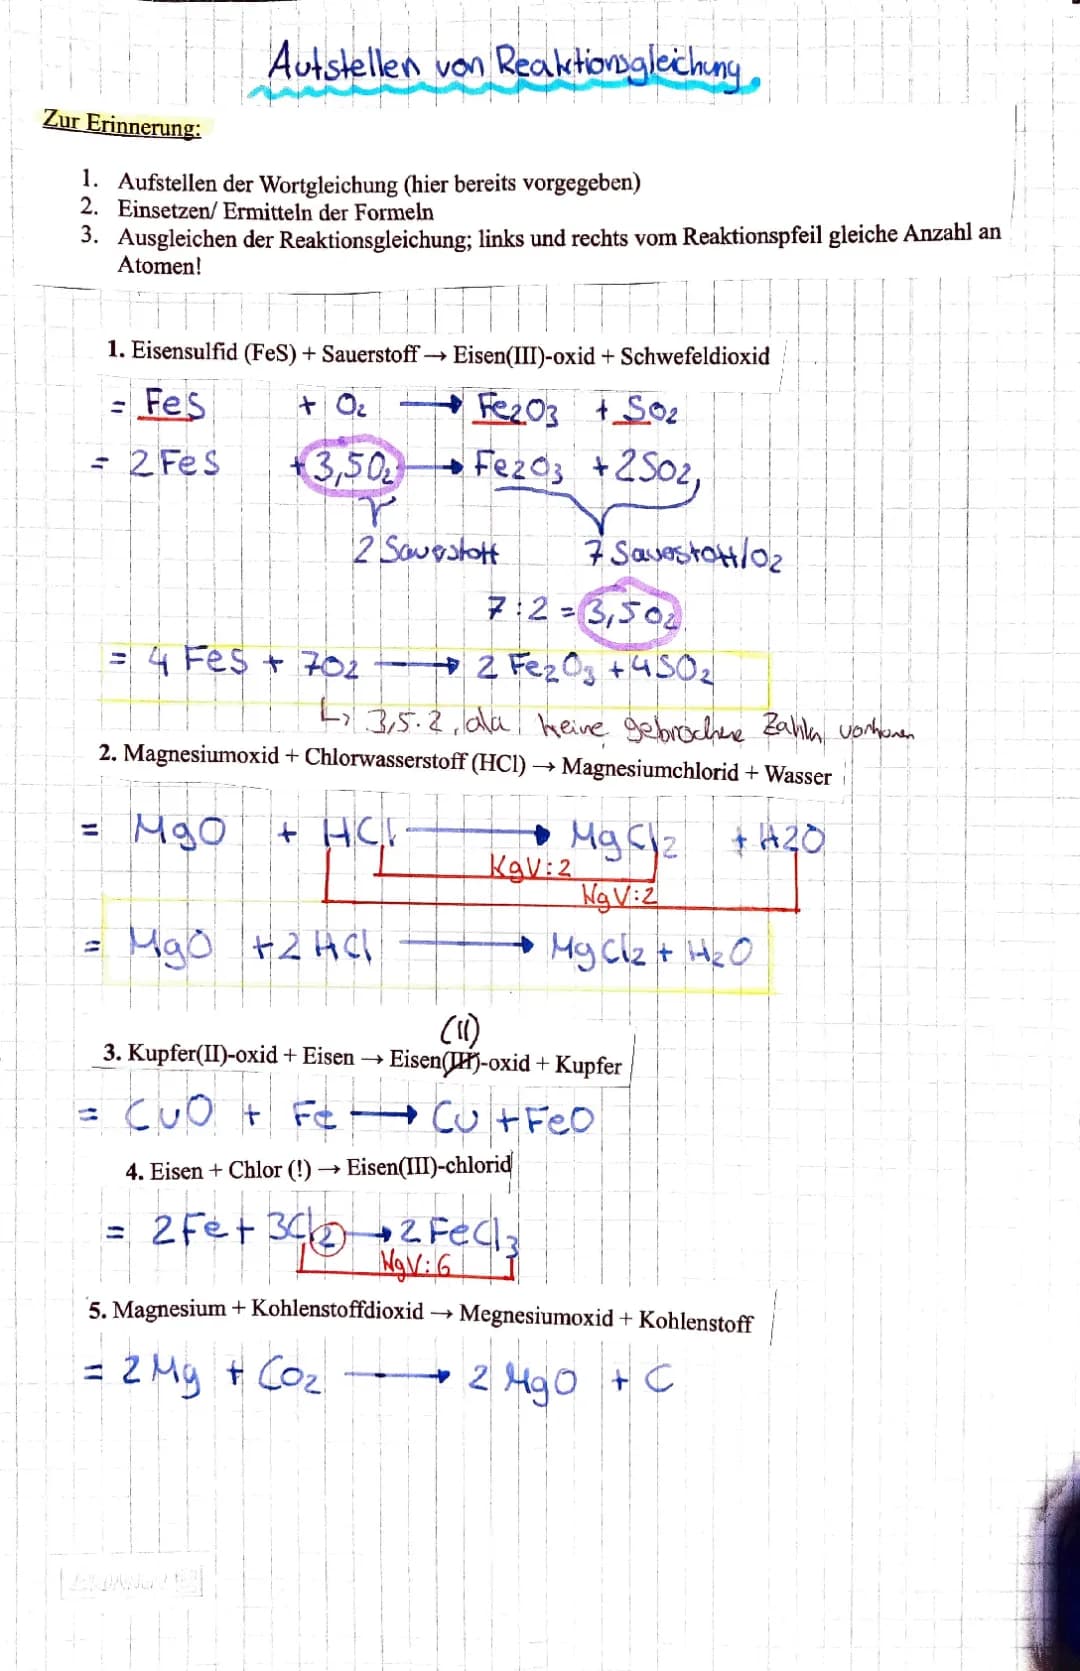 Aufstellen von Reaktionsgleichung
Zur Erinnerung:
1. Aufstellen der Wortgleichung (hier bereits vorgegeben)
2. Einsetzen/ Ermitteln der Formeln
3. Ausgleichen der Reaktionsgleichung; links und rechts vom Reaktionspfeil gleiche Anzahl an
Atomen!
1. Eisensulfid (FeS) + Sauerstoff → Eisen(III)-oxid + Schwefeldioxid
= FeS + O₂ → Fe₂O₃ + SO₂
= 2 FeS + 3,5O₂ → Fe₂O₃ + 2SO₂
2 Sauerstoff 7 Sauerstoff/O₂
7 : 2 = 3,5 O₂
= 4 FeS + 7O₂ → 2 Fe₂O₃ + 4SO₂
↳ 3,5 · 2, da keine gebrochene Zahlen
2. Magnesiumoxid + Chlorwasserstoff (HCl) → Magnesiumchlorid + Wasser
= MgO + HCl → MgCl₂ + H2O
KgV: 2
KgV: 2
= MgO + 2 HCl → MgCl₂ + H₂O
(II)
3. Kupfer(II)-oxid + Eisen → Eisen(III)-oxid + Kupfer
= CuO + Fe → Cu + FeO
4. Eisen + Chlor (!) → Eisen(III)-chlorid
= 2 Fe + 3Cl₂ → 2 FeCl₃
KgV: 6
5. Magnesium + Kohlenstoffdioxid → Megnesiumoxid + Kohlenstoff
= 2 Mg + CO₂ → 2 MgO + C